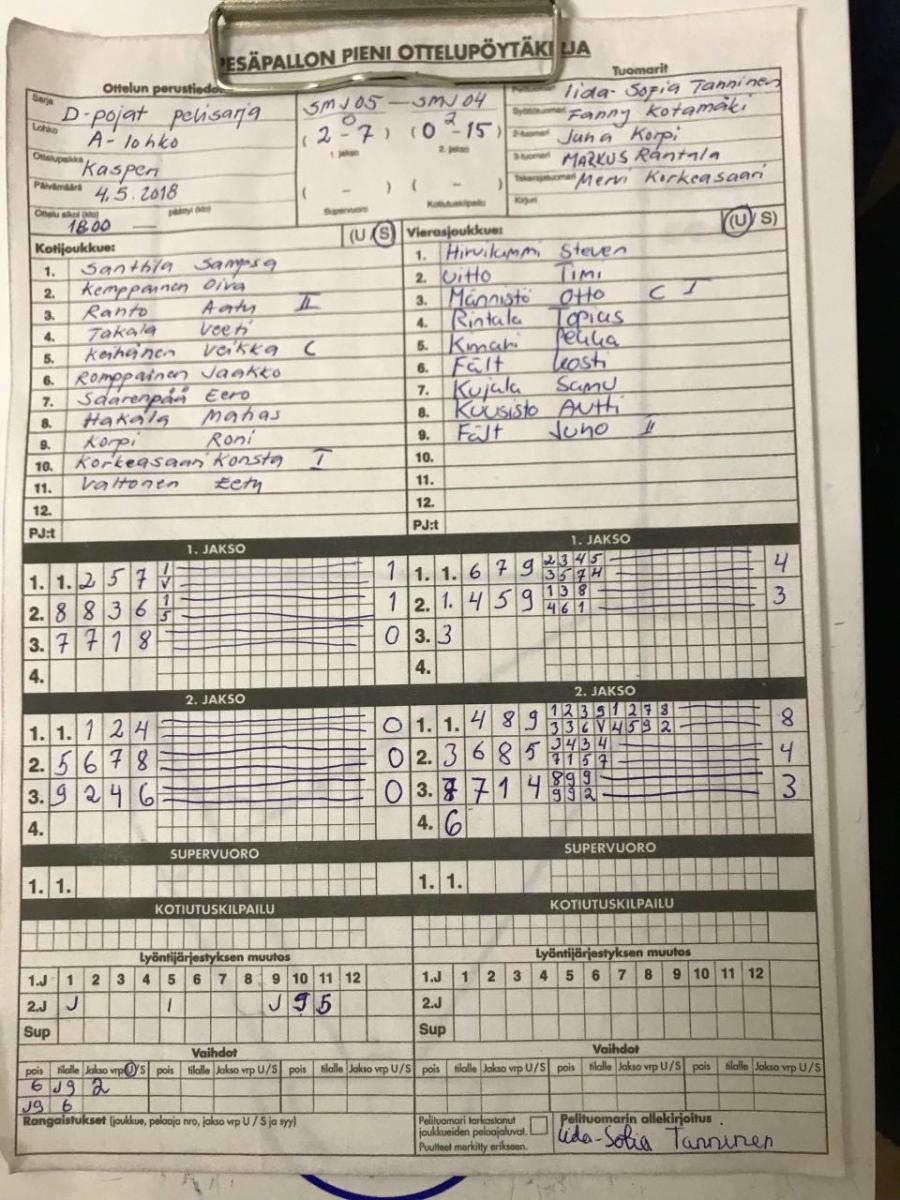 PESÄPALLON PIENI OTTELUPÖYTÄKIRJA
Ottelun perustiedot
Tuomarit
Sarja D-pojat pelisarja
Lohko A-lohko
Ottelupaikka Kasperi
Päivämäärä 4.5.2018
Ottelu alkoi (klo) 18.00 päättyi (klo) —
SMJ05 — SMJ04
(2 - 7) (0 - 15)
1. jakso 2. jakso
( - ) ( - )
Supervuoro Kotiutuskilpailu
Pelituomari Iida-Sofia Tanninen
Syöttötuomari Fanny Kotamäki
2-tuomari Juha Korpi
3-tuomari MARKUS Rantala
Takarajatuomari Mervi Korkeasaari
Kirjuri
Kotijoukkue: (U S)
1. Santhla Sampsa
2. Kemppainen Oiva
3. Ranto Aatu II
4. Takala Veeti
5. Keihänen Veikka C
6. Romppainen Jaakko
7. Saarenpää Eero
8. Hakala Mahas
9. Korpi Roni
10. Korkeasaari Konsta I
11. Valtonen Eety
12.
PJ:t
Vierasjoukkue: (U / S)
1. Hirvilammi Steven
2. Uitto Timi
3. Männistö Otto C I
4. Rintala Topias
5. Kinnari Pekka
6. Fält Kosti
7. Kujala Samu
8. Kuusisto Autti
9. Fält Juho II
10.
11.
12.
PJ:t
1. JAKSO
1. 1. 2 5 7 1 V 1
2. 8 8 3 6 1 5 1
3. 7 7 1 8 0
4.
1. JAKSO
1. 1. 6 7 9 2 3 4 5 4
3 5 7 4
2. 1. 4 5 9 1 3 8 3
4 6 1
3. 3
4.
2. JAKSO
1. 1. 1 2 4 0
2. 5 6 7 8 0
3. 9 2 4 6 0
4.
2. JAKSO
1. 1. 4 8 9 1 2 3 9 1 2 7 8 8
3 3 6 V 4 5 9 2
2. 3 6 8 5 3 4 3 4 4
7 1 5 7
3. 7 7 1 4 8 9 9 3
9 9 2
4. 6
SUPERVUORO
1. 1.
SUPERVUORO
1. 1.
KOTIUTUSKILPAILU
KOTIUTUSKILPAILU
Lyöntijärjestyksen muutos
1.J 1 2 3 4 5 6 7 8 9 10 11 12
2.J J 1 J 9 5
Sup
Lyöntijärjestyksen muutos
1.J 1 2 3 4 5 6 7 8 9 10 11 12
2.J
Sup
Vaihdot
pois tilalle Jakso vrp U/S pois tilalle Jakso vrp U/S pois tilalle Jakso vrp U/S
6 J9 2
J9 6
Vaihdot
pois tilalle Jakso vrp U/S pois tilalle Jakso vrp U/S pois tilalle Jakso vrp U/S
Rangaistukset (joukkue, pelaaja nro, jakso vrp U / S ja syy)
Pelituomari tarkastanut
joukkueiden pelaajaluvat.
Puutteet merkitty erikseen.
Pelituomarin allekirjoitus
Iida-Sofia Tanninen